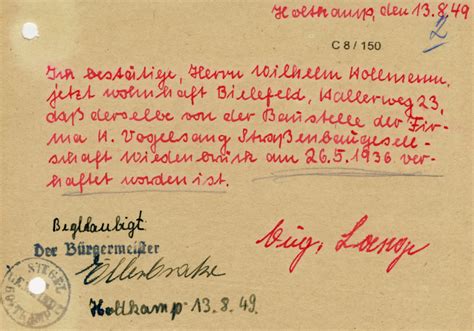 Holtkamp, den 13.8.49
2
C 8 / 150
Ich bestätige, Herrn Wilhelm Kollmann,
jetzt wohnhaft Bielefeld, Hallerweg 23,
daß derselbe von der Baustelle der Fir-
ma H. Vogelsang Straßenbaugesell-
schaft Wiedenbrück am 26.5.1936 ver-
haftet worden ist.
Beglaubigt
Der Bürgermeister
Aug. Lange
Holtkamp 13.8.49.
SIEGEL